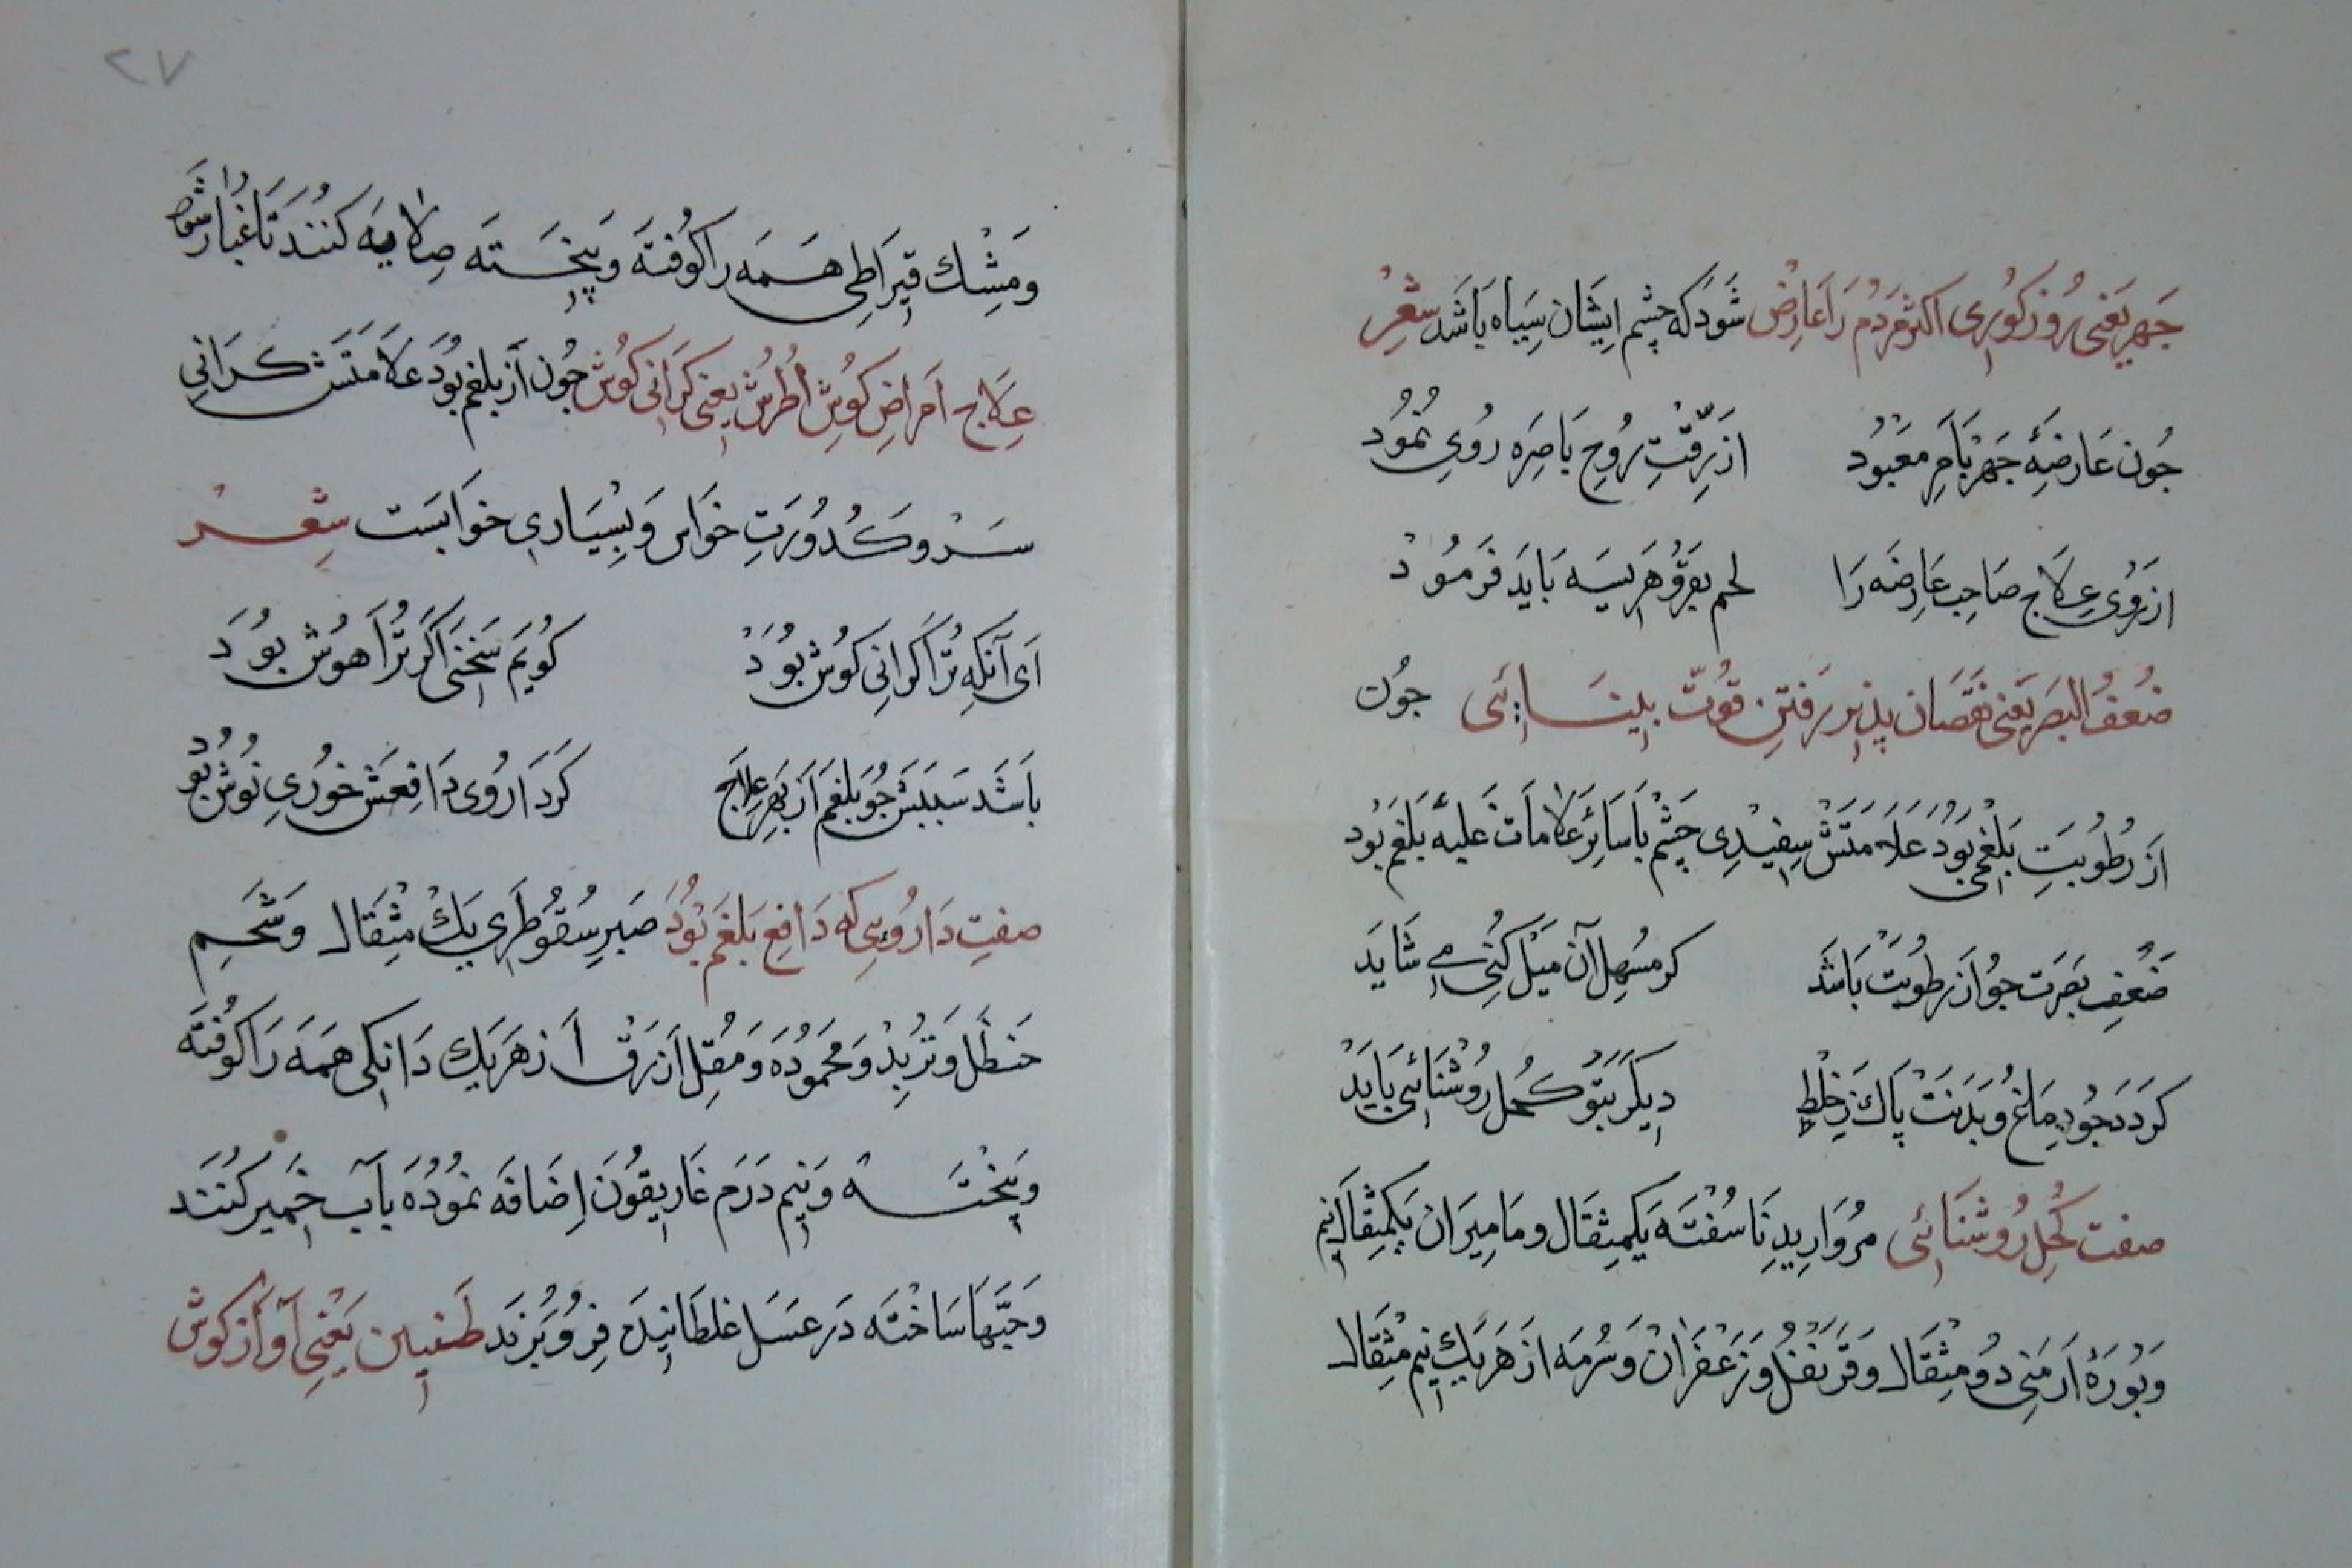 جَهر یَعنی رُوز کوُری اکثر مَردُم رَا عَارِض شَوَد که چشم اِیشَان سِیَاه بَاشَد شعر
جُون عَارضِۀ جَهر بَامرِ مَعبُود
از رِقّتِ رُوحِ بَاصِرَه رُویِ نمُود
از رَوی عِلاج صَاحِب عَارِضَه رَا
لحم بقر و هَریسَه بَایَد فَرمُود
ضُعفُ البَصَر یَعنی نقصَان پذیر رَفتنِ قُوّت بینَائی جُون
اَز رطُوبتِ بَلغمی بَود عَلَامَتش سِفیدی چَشم بَا سَائِر علامَات غلبۀ بَلغَم بَود
ضُعفِ بَصَرت جوُ اَز رطُوبَت بَاشَد
کر مسُهِل آن مَیل کُنی می شَایَد
کَردَد جُو دِمَاغ وُ بَدَنَت پَاك زِ خِلط
دِیکَر بَتوَ کُحل رُوشنَائی بَایَد
صفت کُحلِ رُوشنَائی مرُوَارِیدِ نَاسُفتَه یَكمِثقَال و مَامِیرَان یَكمِثقَال نیم
وَ بُورَۀ اَرمَنی دوُ مِثقَال وَ قَرَنفُل وَ زَعفَرَان وَ سُرمَه اَز هَر یَك نیم مِثقَال
٢٧
و مَشِك قیرَاطِی هَمَه را کوُفتَه وَ بیختَه صَلایَه کنند تَا غُبَار شَود
عِلَاج اَمرَاضِ کوُش اُطرُش یعنی کَرَانی کوُش جُون اَز بلغم بوُد عَلَامَتَش کرَانیِ
سَر وَ کدُورَتِ خوَاس وَ بسِیَاری خوَابَست شعر
اَی آنکِه تُرا کَرانی کوُش بوُد
کوُیَم سَخنَی اَکَر تُرا هوُش بوُد
باَشَد سَبَبَش جُو بَلغَم اَز بَهرِ عِلاَج
کَر دَارُوی دَافِعَش خُورِی نوُش بوَُد
صفتِ دَاروُیی که دَافِع بَلغَم بوَُد صَبرِ سقُوطرَی یَكْ مِثقَال وَ شَحَمِ
حَنظَل وَ تَربُد وَ مَحمُودَه وَ مُقلِ اَزرَق اَز هَر یَك دَانکی هَمَه رَا کوُفتَه
وَ بیختَه وَ نیم دَرَم غَاریقُون اِضَافَه نمُودَه بآب خَمیر کُنَند
وَ حَبّهَا سَاختَه دَر عَسَل غلطَانیدَه فِروُ بَرَند طَنین یَعنِی آوَاَز کوش